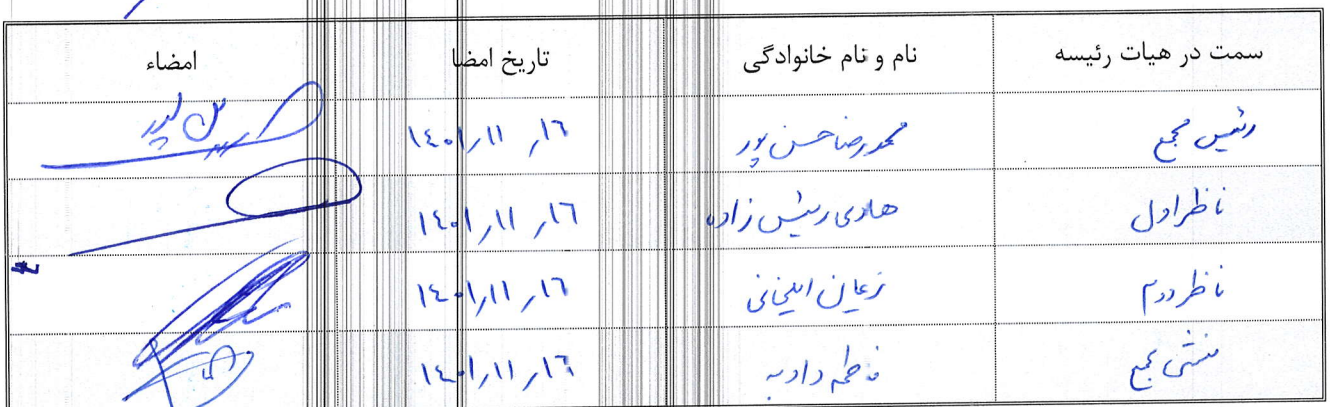 سمت در هیات رئیسه نام و نام خانوادگی تاریخ امضا امضاء
رئیس مجمع محمدرضا حسن پور ۱۴۰۱/۱۱/۱۶
ناظر اول هادی رئیس زاده ۱۴۰۱/۱۱/۱۶
ناظر دوم نریمان ایلخانی ۱۴۰۱/۱۱/۱۶
منشی مجمع فاطمه دادبه ۱۴۰۱/۱۱/۱۶